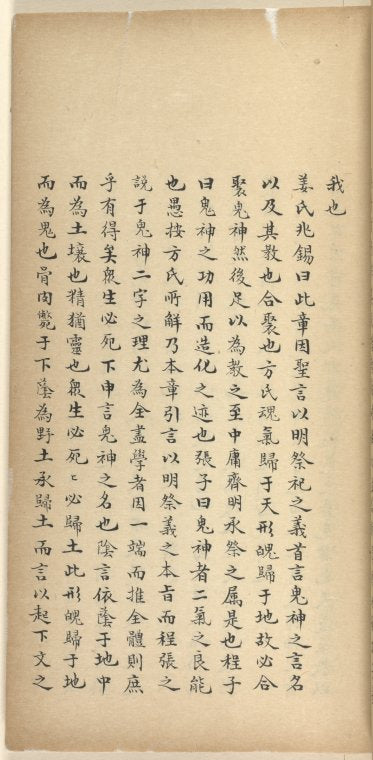 我也
姜氏兆錫曰此章因聖言以明祭祀之義首言鬼神之言名
以及其教也合聚也方氏魂氣歸于天形魄歸于地故必合
聚鬼神然後足以為教之至中庸齊明承祭之属是也程子
曰鬼神之功用而造化之迹也張子曰鬼神者二氣之良能
也愚按方氏所解乃本章引言以明祭義之本旨而程張之
說于鬼神二字之理尤為全盡學者因一端而推全體則庶
乎有得矣衆生必死下申言鬼神之名也陰言依蔭于地中
而為土壤也精猶靈也衆生必死〻必歸土此形魄歸于地
而為鬼也骨肉斃于下蔭為野土承歸土而言以起下文之